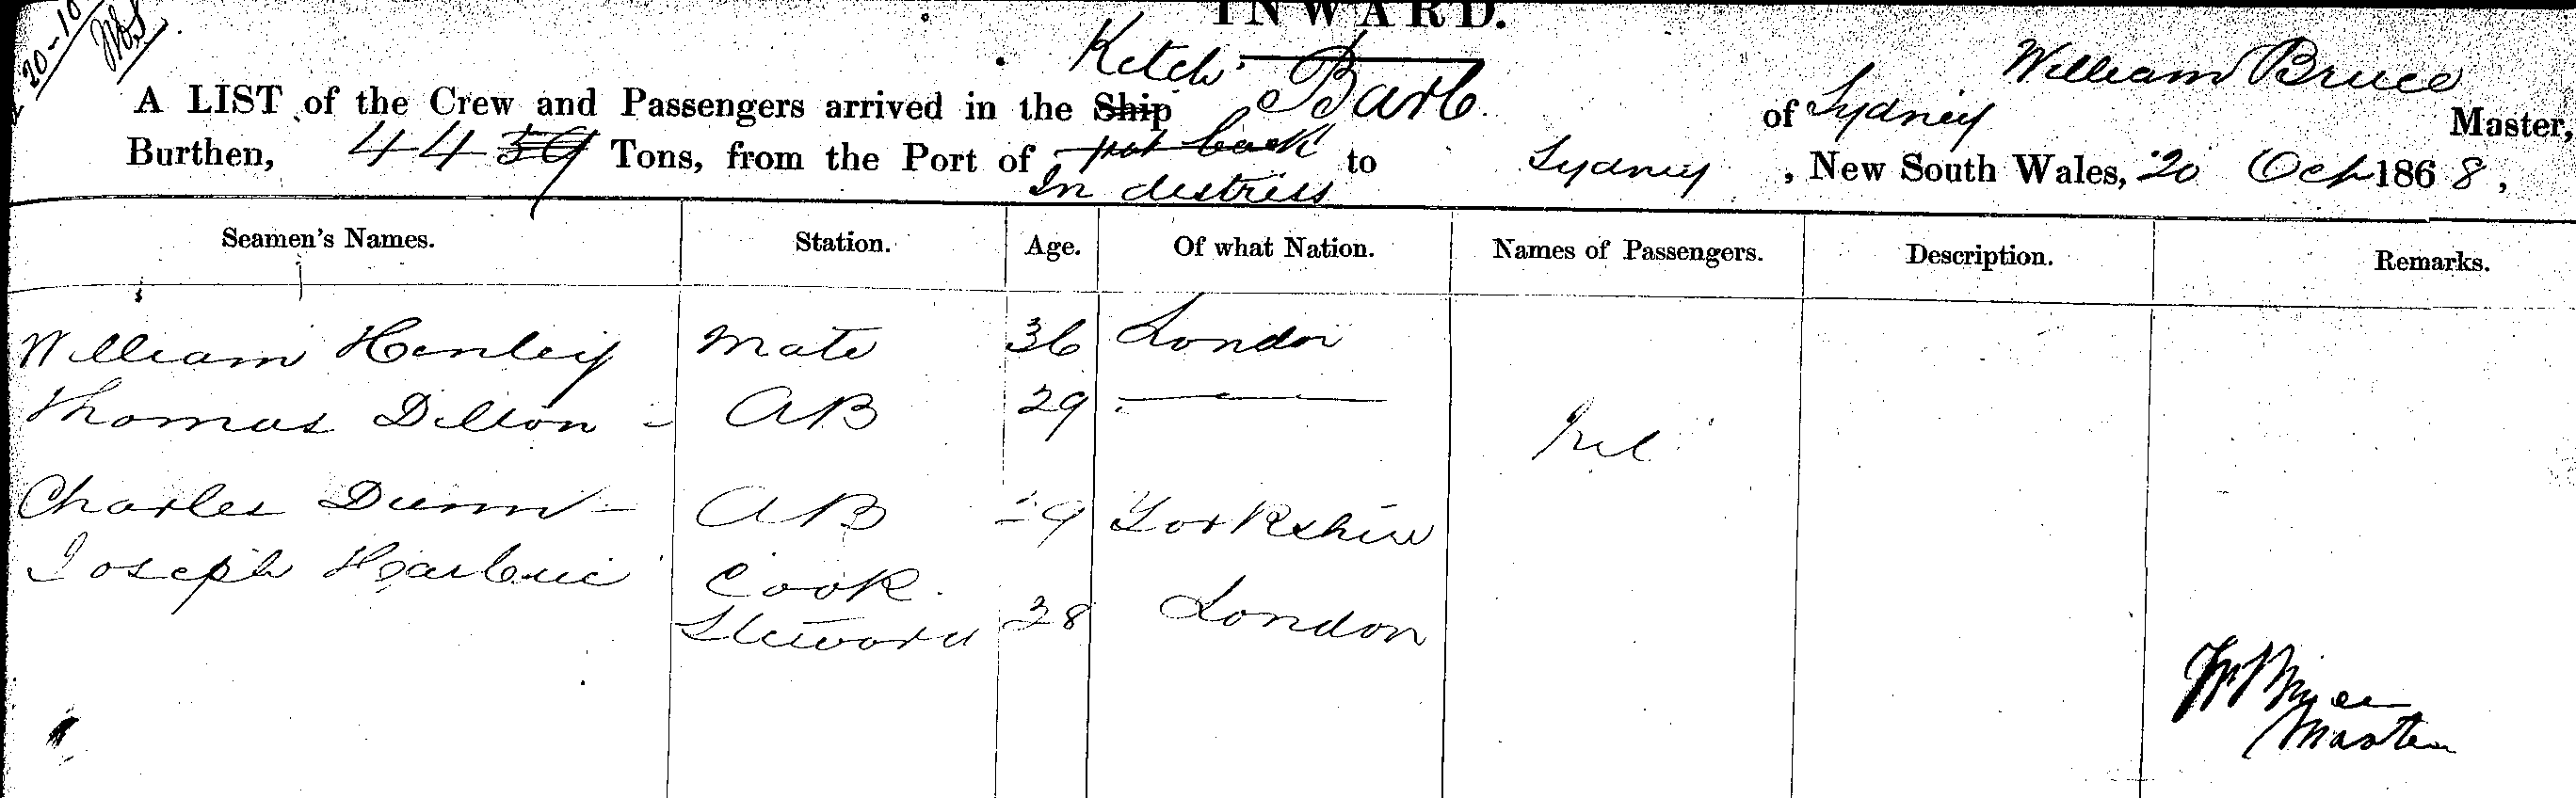 20-10
INWARD.
Ketch Barb William Bruce
A LIST of the Crew and Passengers arrived in the Ship of Sydney Master,
Burthen, 44 59 Tons, from the Port of put back to Sydney, New South Wales, 20 Oct 1868,
In distress
Seamen's Names. Station. Age. Of what Nation. Names of Passengers. Description. Remarks.
William Henley Mate 36 London
Thomas Dillon - AB 29 ———
Nil
Charles Dunn - AB 29 Yorkshire
Joseph Cook
Steward 38 London
Wm Bruce
Master